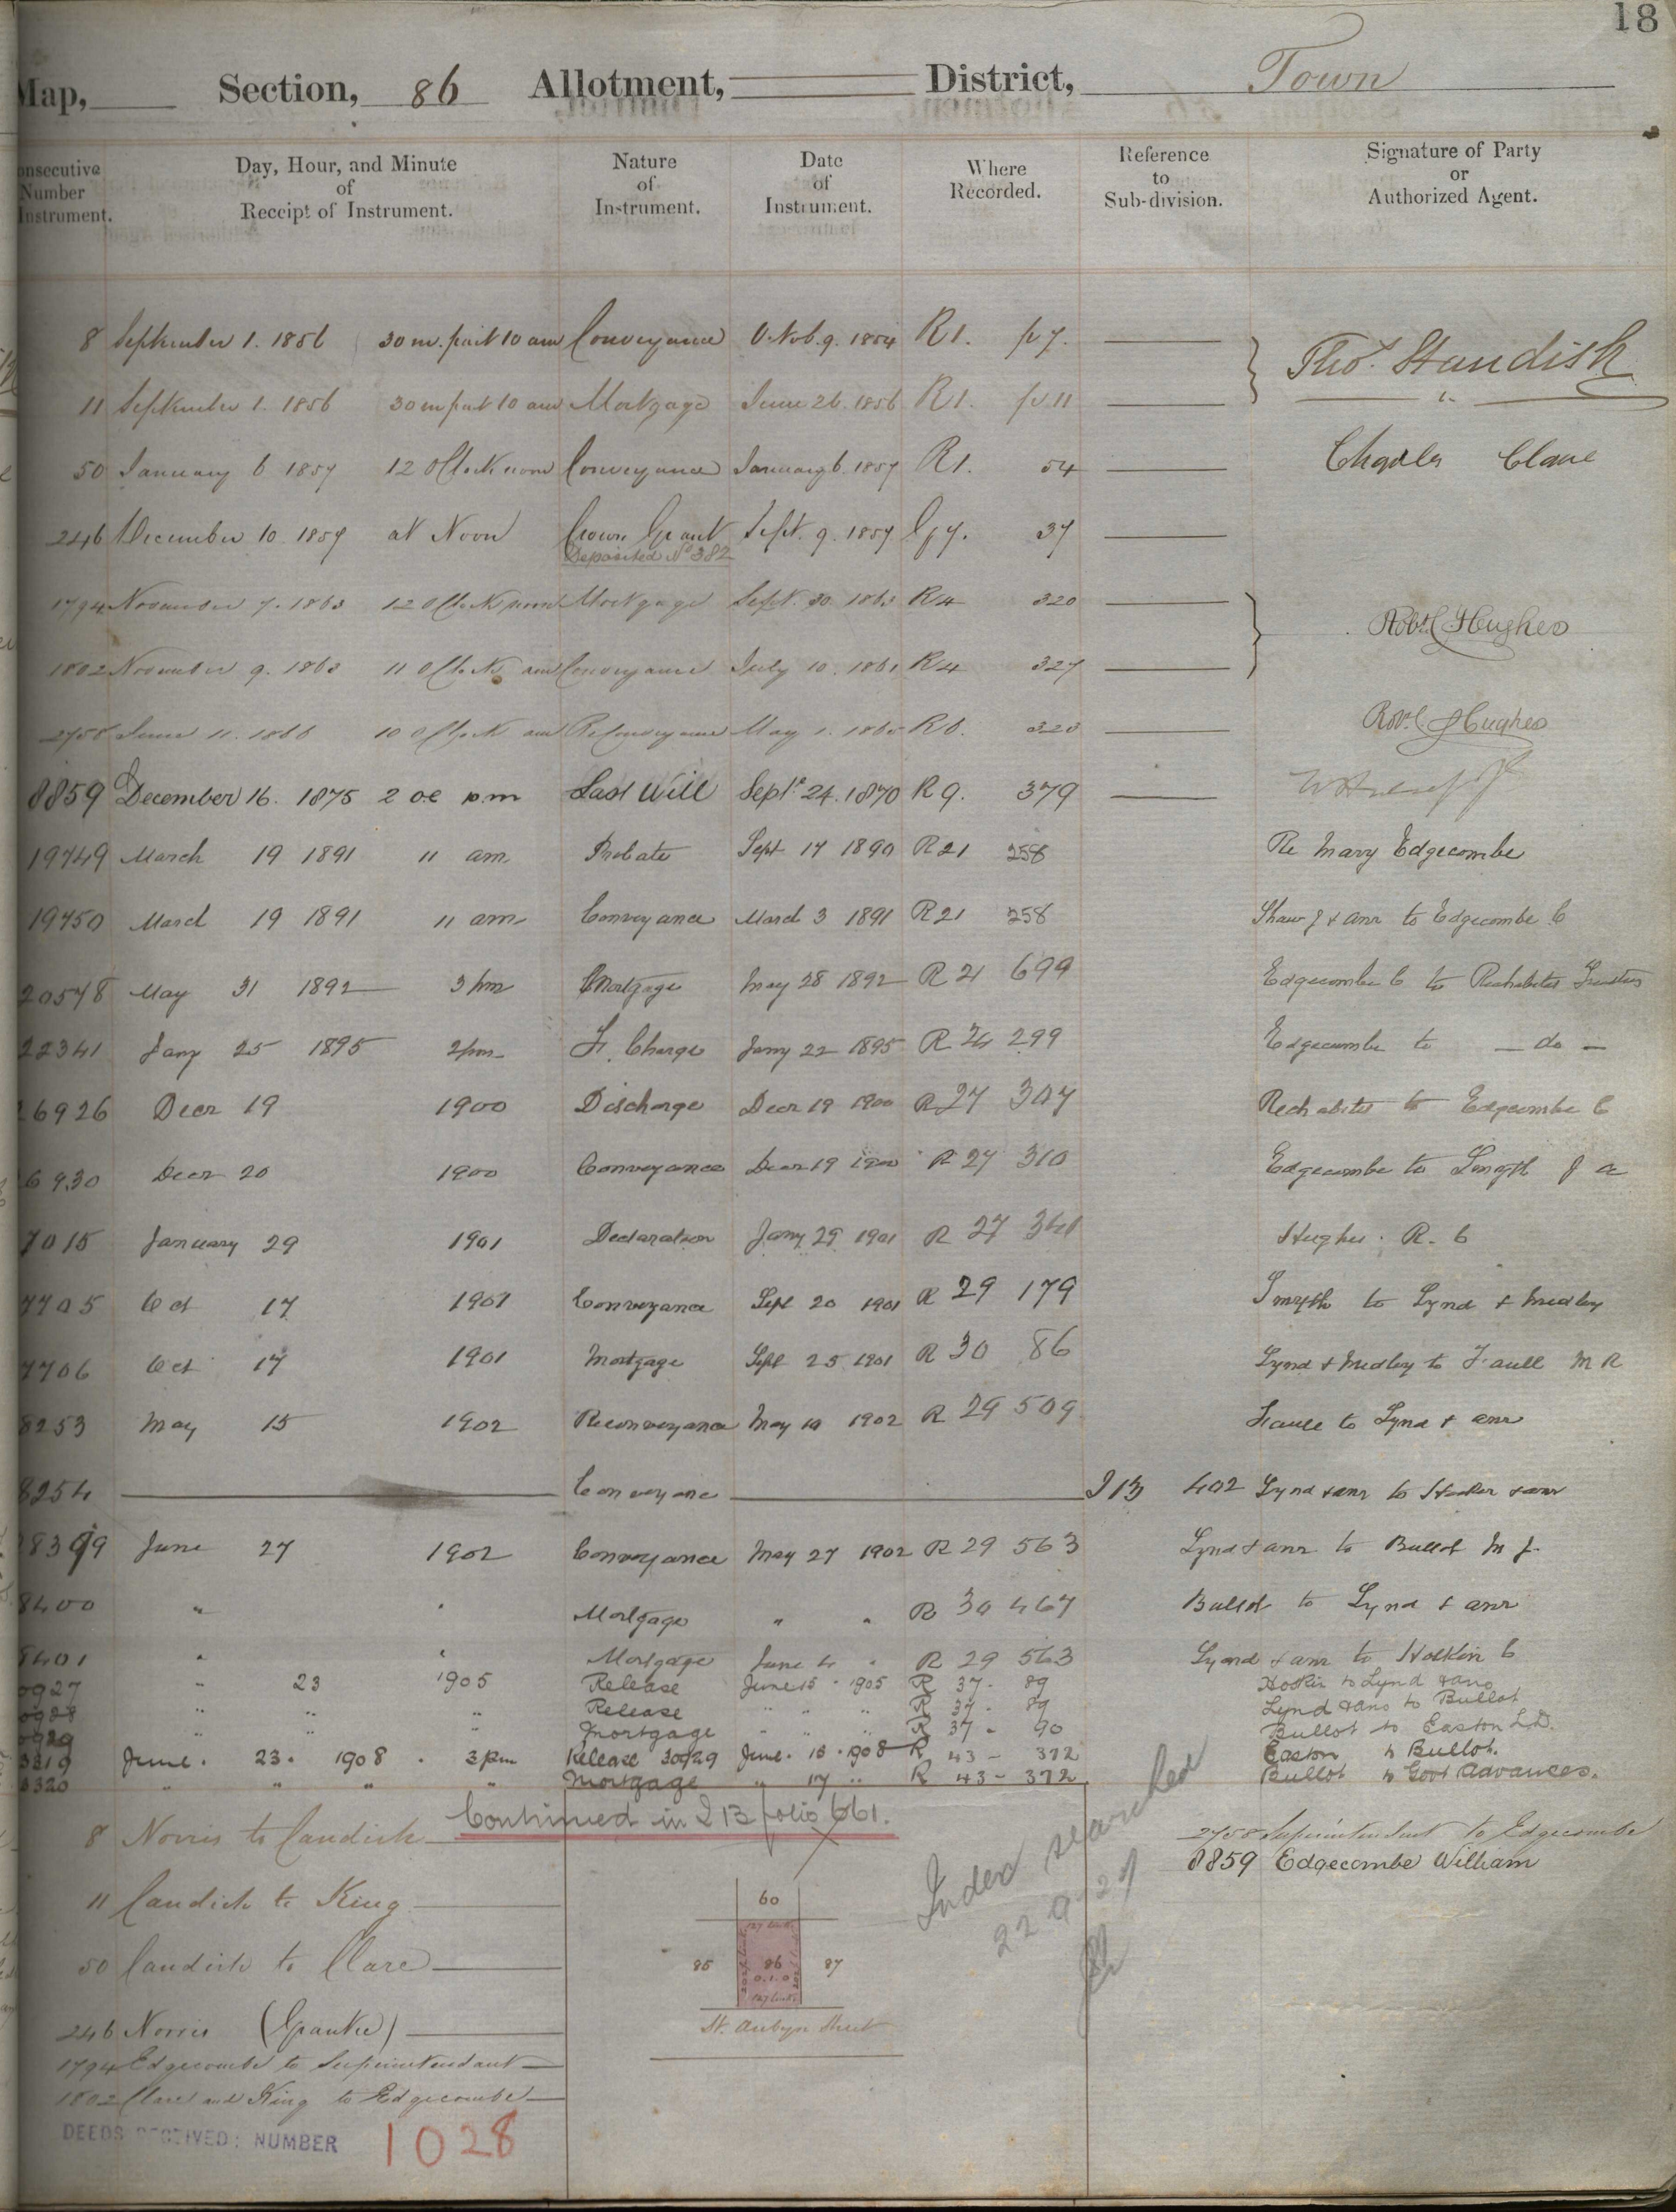 18
Map, Section, 86 Allotment, District, Town
Consecutive Number Instrument. Day, Hour, and Minute of Receipt of Instrument. Nature of Instrument. Date of Instrument. Where Recorded. Reference to Sub-division. Signature of Party or Authorized Agent.
8 September 1. 1856 30 m. past 10 am Conveyance 9. 1854 R1. p 7. Thos. Standish
11 September 1. 1856 30 m past 10 am Mortgage June 26. 1856 R1. p 11
50 January 6 1857 12 OClock noon Conveyance January 6. 1857 R1. 54 Charles Clare
246 December 10. 1859 at Noon Crown Grant Sept. 9. 1857 37
Deposited No 382
1794 November 7. 1863 12 OClock noon Mortgage Sept. 30. 1863 R4 320 Robt. C Hughes
1802 November 9. 1863 11 OClock am Conveyance July 10. 1861 R4 327
2758 June 11. 1866 10 OClock am ReConveyance May 1. 1865 R6. 323 Robt. C Hughes
8859 December 16. 1875 2 oc pm Last Will Sept. 24. 1870 R 9. 379
19749 March 19 1891 11 am Probate Sept 17 1890 R21 258 Re Mary Edgecombe
19750 March 19 1891 11 am Conveyance March 3 1891 R21 258 Shaw J & anr to Edgecombe C
20578 May 31 1892 3 pm Mortgage May 28 1892 R 21 699 Edgecombe C to Rechabites Trustees
22341 Jany 25 1895 2 pm F. Charge Jany 22 1895 R 24 299 Edgecumbe to do
26926 Decr 19 1900 Discharge Decr 19 1900 R 27 307 Rechabites to Edgecombe C
6930 Decr 20 1900 Conveyance Decr 19 1900 R 27 310 Edgecombe to Smyth J
7015 January 29 1901 Declaration Jany 29 1901 R 27 341 Hughes. R. C
7705 Oct 17 1901 Conveyance Sept 20 1901 R 29 179 Smyth to Lynd & Medley
7706 Oct 17 1901 Mortgage Sept 25 1901 R 30 86 Lynd & Medley to Faull M R
8253 May 15 1902 Reconveyance May 10 1902 R 29 509 Faull to Lynd & anr
8254 Conveyance I 13 402 Lynd & anr to & anr
28399 June 27 1902 Conveyance May 27 1902 R 29 563 Lynd & anr to Bullot M J.
8400 " " Mortgage " " R 30 467 Bullot to Lynd & anr
8401 " " Mortgage June 4 " R 29 563 Lynd & anr to Hoskin C
0927 " 23 1905 Release June 15 . 1905 R 37 . 89 Hoskin to Lynd & ano
0928 " " " Release " " " R 37 . 89 Lynd & ano to Bullot
0929 " " " Mortgage " " " R 37 . 90 Bullot to Easton L.D.
3319 June . 23 . 1908 . 3 pm Release 30929 June . 15 . 1908 R 43 - 372 Easton to Bullot.
3320 " " " " Mortgage " 17 " R 43 - 372 Bullot to Govt Advances.
Continued in I 13 folio 661.
8 Norris to Candish
2758 Superintendent to Edgecombe
8859 Edgecombe William
Index searched
22 9 27
11 Candish to King
50 Candish to Clare
246 Norris (Grantee)
1794 Edgecombe to Superintendant
1802 Clare and King to Edgecombe
60
127 links
85 86 87
0.1.0
127 links
St. Aubyn Street
DEEDS RECEIVED: NUMBER 1028